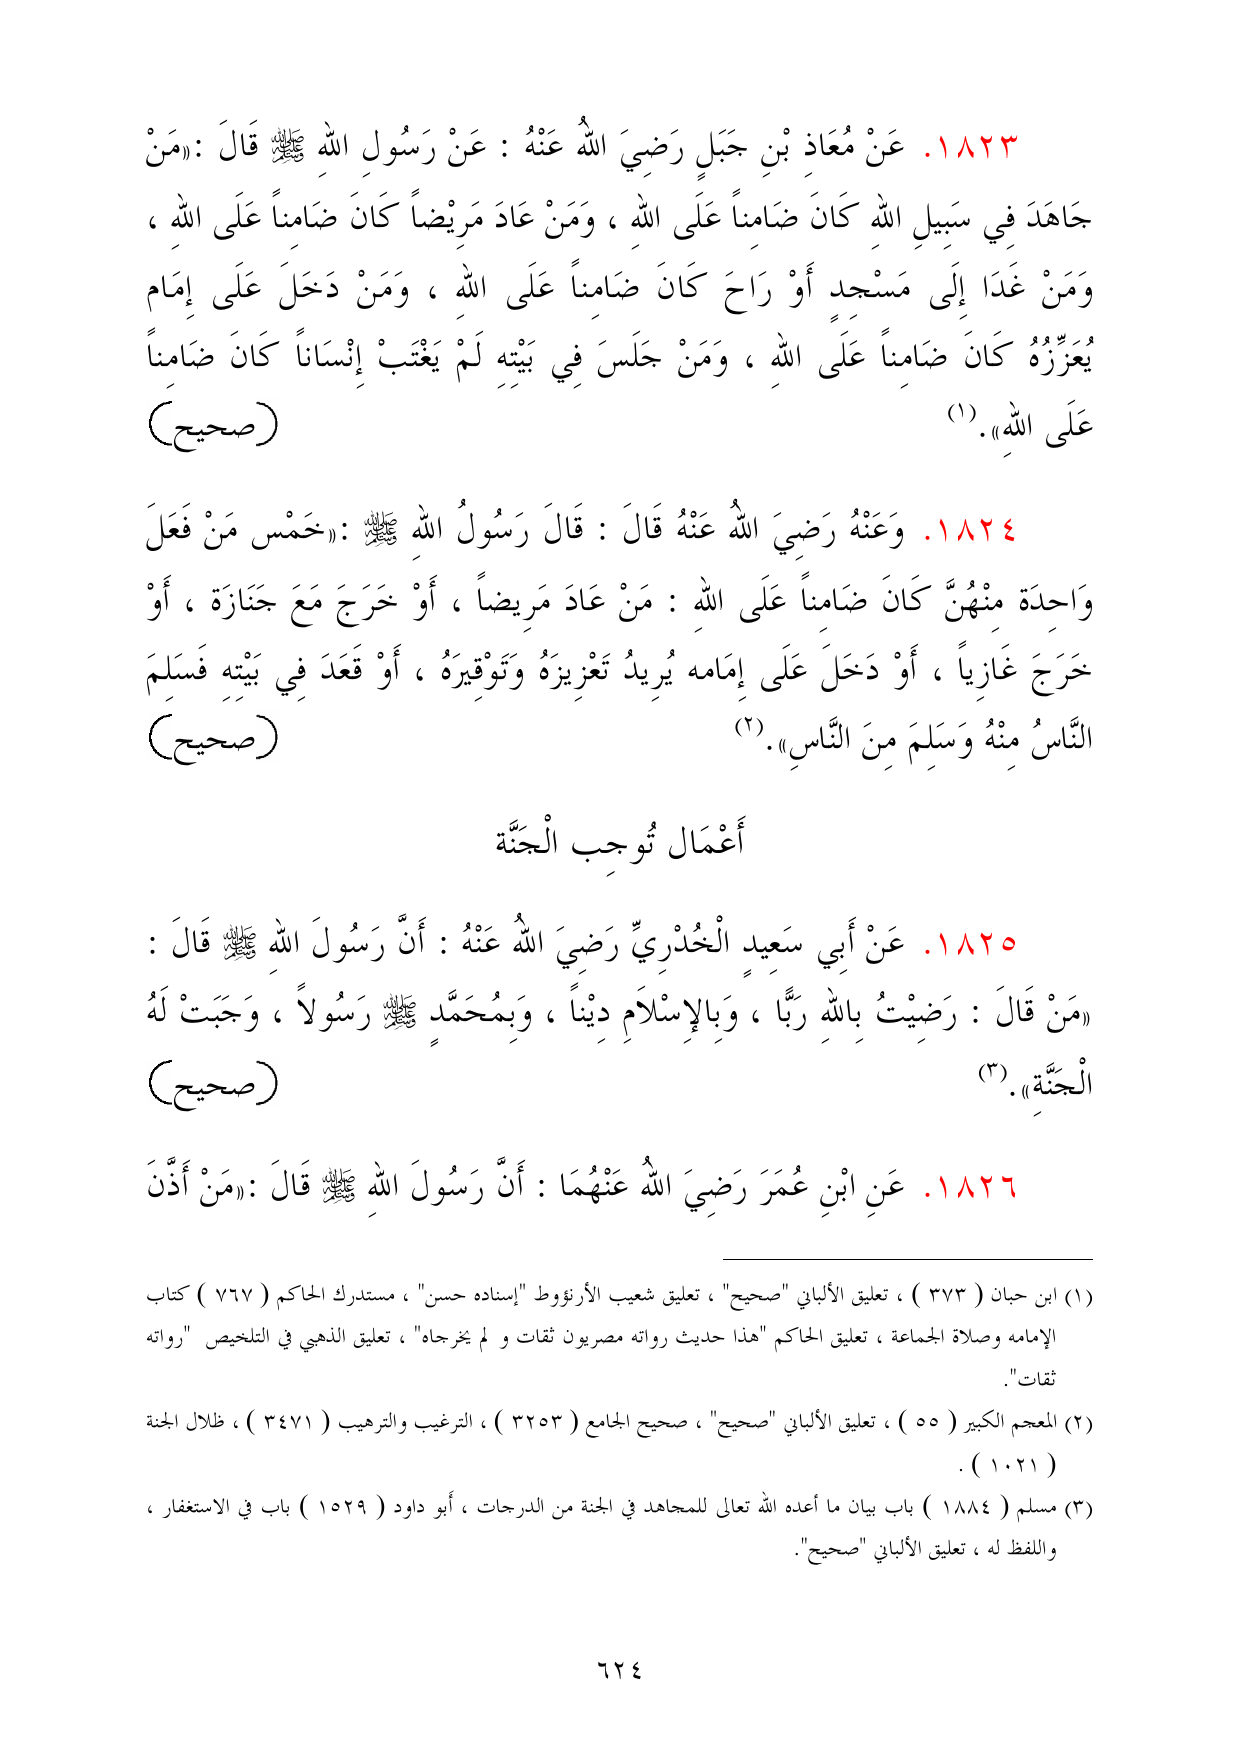 ١٨٢٣. عَنْ مُعَاذِ بْنِ جَبَلٍ رَضِيَ اللهُ عَنْهُ : عَنْ رَسُولِ اللهِ ﷺ قَالَ :«مَنْ
جَاهَدَ فِي سَبِيلِ اللهِ كَانَ ضَامِناً عَلَى اللهِ ، وَمَنْ عَادَ مَرِيْضاً كَانَ ضَامِناً عَلَى اللهِ ،
وَمَنْ غَدَا إِلَى مَسْجِدٍ أَوْ رَاحَ كَانَ ضَامِناً عَلَى اللهِ ، وَمَنْ دَخَلَ عَلَى إِمَام
يُعَزِّرُهُ كَانَ ضَامِناً عَلَى اللهِ ، وَمَنْ جَلَسَ فِي بَيْتِهِ لَمْ يَغْتَبْ إِنْسَاناً كَانَ ضَامِناً
عَلَى اللهِ».(١) (صحيح)
١٨٢٤. وَعَنْهُ رَضِيَ اللهُ عَنْهُ قَالَ : قَالَ رَسُولُ اللهِ ﷺ :«خَمْس مَنْ فَعَلَ
وَاحِدَة مِنْهُنَّ كَانَ ضَامِناً عَلَى اللهِ : مَنْ عَادَ مَرِيضاً ، أَوْ خَرَجَ مَعَ جَنَازَة ، أَوْ
خَرَجَ غَازِياً ، أَوْ دَخَلَ عَلَى إِمَامه يُرِيدُ تَعْزِيزَهُ وَتَوْقِيرَهُ ، أَوْ قَعَدَ فِي بَيْتِهِ فَسَلِمَ
النَّاسُ مِنْهُ وَسَلِمَ مِنَ النَّاسِ».(٢) (صحيح)
أَعْمَال تُوجِب الْجَنَّة
١٨٢٥. عَنْ أَبِي سَعِيدٍ الْخُدْرِيِّ رَضِيَ اللهُ عَنْهُ : أَنَّ رَسُولَ اللهِ ﷺ قَالَ :
«مَنْ قَالَ : رَضِيْتُ بِاللهِ رَبًّا ، وَبِالإِسْلَامِ دِيْناً ، وَبِمُحَمَّدٍ ﷺ رَسُولاً ، وَجَبَتْ لَهُ
الْجَنَّةِ».(٣) (صحيح)
١٨٢٦. عَنِ ابْنِ عُمَرَ رَضِيَ اللهُ عَنْهُمَا : أَنَّ رَسُولَ اللهِ ﷺ قَالَ :«مَنْ أَذَّنَ
(١) ابن حبان ( ٣٧٣ ) ، تعليق الألباني "صحيح" ، تعليق شعيب الأرنؤوط "إسناده حسن" ، مستدرك الحاكم ( ٧٦٧ ) كتاب
الإمامه وصلاة الجماعة ، تعليق الحاكم "هذا حديث رواته مصريون ثقات و لم يخرجاه" ، تعليق الذهبي في التلخيص "رواته
ثقات".
(٢) المعجم الكبير ( ٥٥ ) ، تعليق الألباني "صحيح" ، صحيح الجامع ( ٣٢٥٣ ) ، الترغيب والترهيب ( ٣٤٧١ ) ، ظلال الجنة
( ١٠٢١ ) .
(٣) مسلم ( ١٨٨٤ ) باب بيان ما أعده الله تعالى للمجاهد في الجنة من الدرجات ، أبو داود ( ١٥٢٩ ) باب في الاستغفار ،
واللفظ له ، تعليق الألباني "صحيح".
٦٢٤